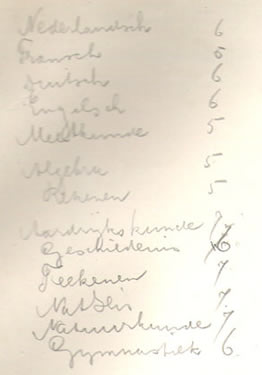 Nederlandsch 6
Fransch 6
Duitsch 6
Engelsch 6
Meetkunde 5
Algebra 5
Rekenen 5
Aardrijkskunde 7
Geschiedenis 6
Teekenen 7
Nat. 7
Natuurkunde 7
Gymnastiek 6